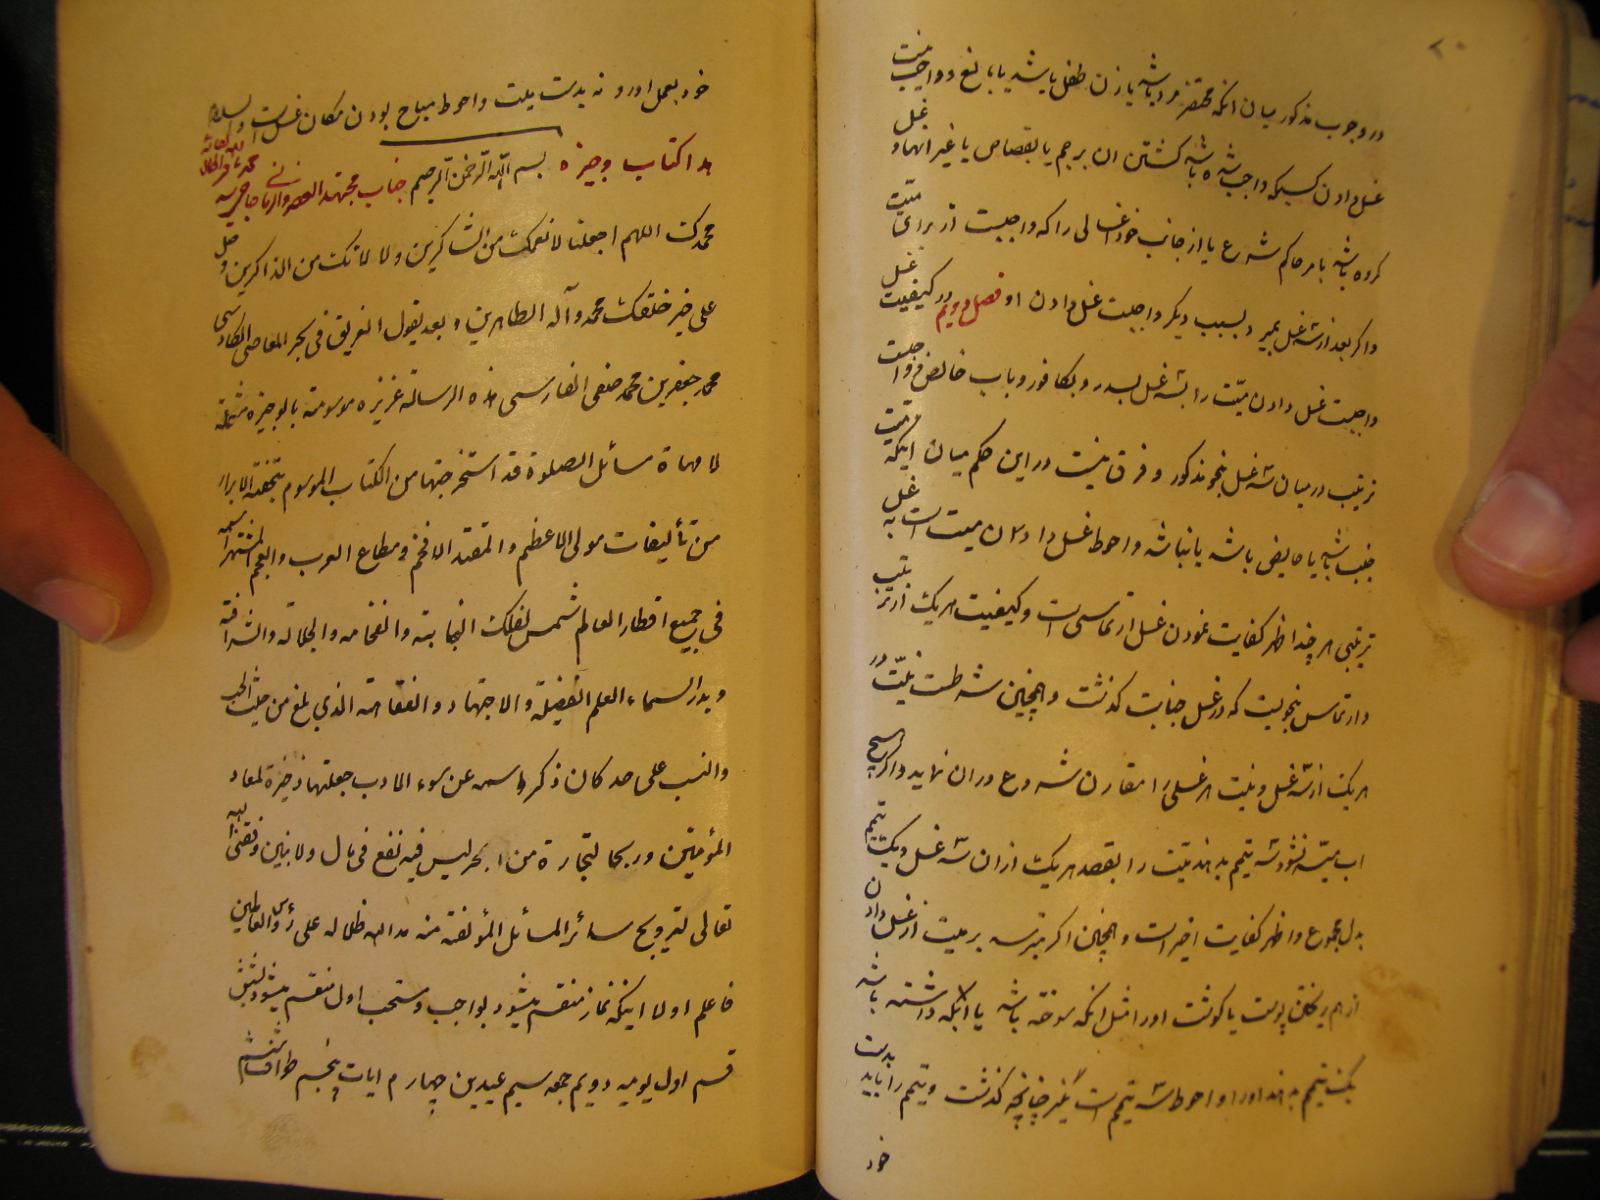 در وجوب مذکور میان انکه محتضر مرد باشد یا زن طفل باشد یا بالغ و واجب نیست
غسل دادن کسیکه واجب شده باشد کشتن ان برجم یا بقصاص یا غیر انها و غسل
کرده باشد بامر حاکم شرع یا از جانب خود غسلی را که واجبست از برای میّت
و اکر بعد از سه غسل بمیرد بسبب دیکر واجبست غسل دادن او فصل دویم در کیفیت غسل
واجبست غسل دادن میّت را بسه غسل بسدر و بکافور و باب خالص و واجبست
ترتیب درمیان سه غسل بنحو مذکور و فرق نیست در این حکم میان اینکه میّت
جنب باشد یا حایض باشد یا نباشد و احوط غسل دادن میت است به غسل
ترتیبی هر چند اظهر کفایت نمودن غسل ارتماسی است و کیفیت هر یک از ترتیب
و ارتماس بنحویست که در غسل جنابت کذشت و همچنین شرطست نیّت در
هر یک از سه غسل و نیت هر غسلی را مقارن شروع در ان نماید و اکر هیچ
اب میسّر نشود سه تیمم بدهند میّت را بقصد هر یک از ان سه غسل و یک تیمم
بدل مجموع و اظهر کفایت اخیر است و همچنین اکر بترسد بر میت از غسل دادن
از هم ریختن پوست یا کوشت او را مثل انکه سوخته باشد یا ابله داشته باشد
یک تیمم بدهند او را و احوط سه تیمم است نیز چنانچه کذشت و تیمم را باید بدست
خود
خود بعمل اورد نه بدست میت و احوط مباح بودن مکان غسل است والسلام
هذا کتاب وجیزه بسم الله الرحمن الرحیم جناب مجتهد العصر والزمانی حاجی
نحمدک اللهم اجعلنا لانعمک من الشاکرین ولالائک من الذاکرین وصل
علی خیر خلقک محمد وآله الطاهرین وبعد یقول الغریق فی بحر المعاصی
محمد جعفر بن محمد صفی الفارسی هذه الرسالة عزیزه موسومة بالوجیزه مشتملة
لامهاة مسائل الصلوة قد استخرجتها من الکتاب الموسوم بتحفة الابرار
من تألیفات مولی الاعظم والمقتد الافخم ومطاع العرب والعجم المشتهر اسمه
فی جمیع اقطار العالم شمس لفلک النجابته والفخامه والجلالة والشرافة
وبدر السماء العلم الفضیلة والاجتهاد والفقاهة الذی بلغ من حیث الحسب
والنسب علی حد کان ذکر اسمه عن سوء الادب جعلتها ذخیرة لمعاد
المؤمنین وربحا لتجارة من ابحر لیس فیه نفع فی مال ولا بنین وفقنی الله
تعالی لترویج سائر المسائل المؤلفة منه مد الله ظلاله علی رؤس العالمین
فاعلم اولا اینکه نماز منقسم میشود بواجب وستحب اول منقسم میشود بشش
قسم اول یومیه دویم جمعه سیم عیدین چهارم ایات پنجم طواف ششم